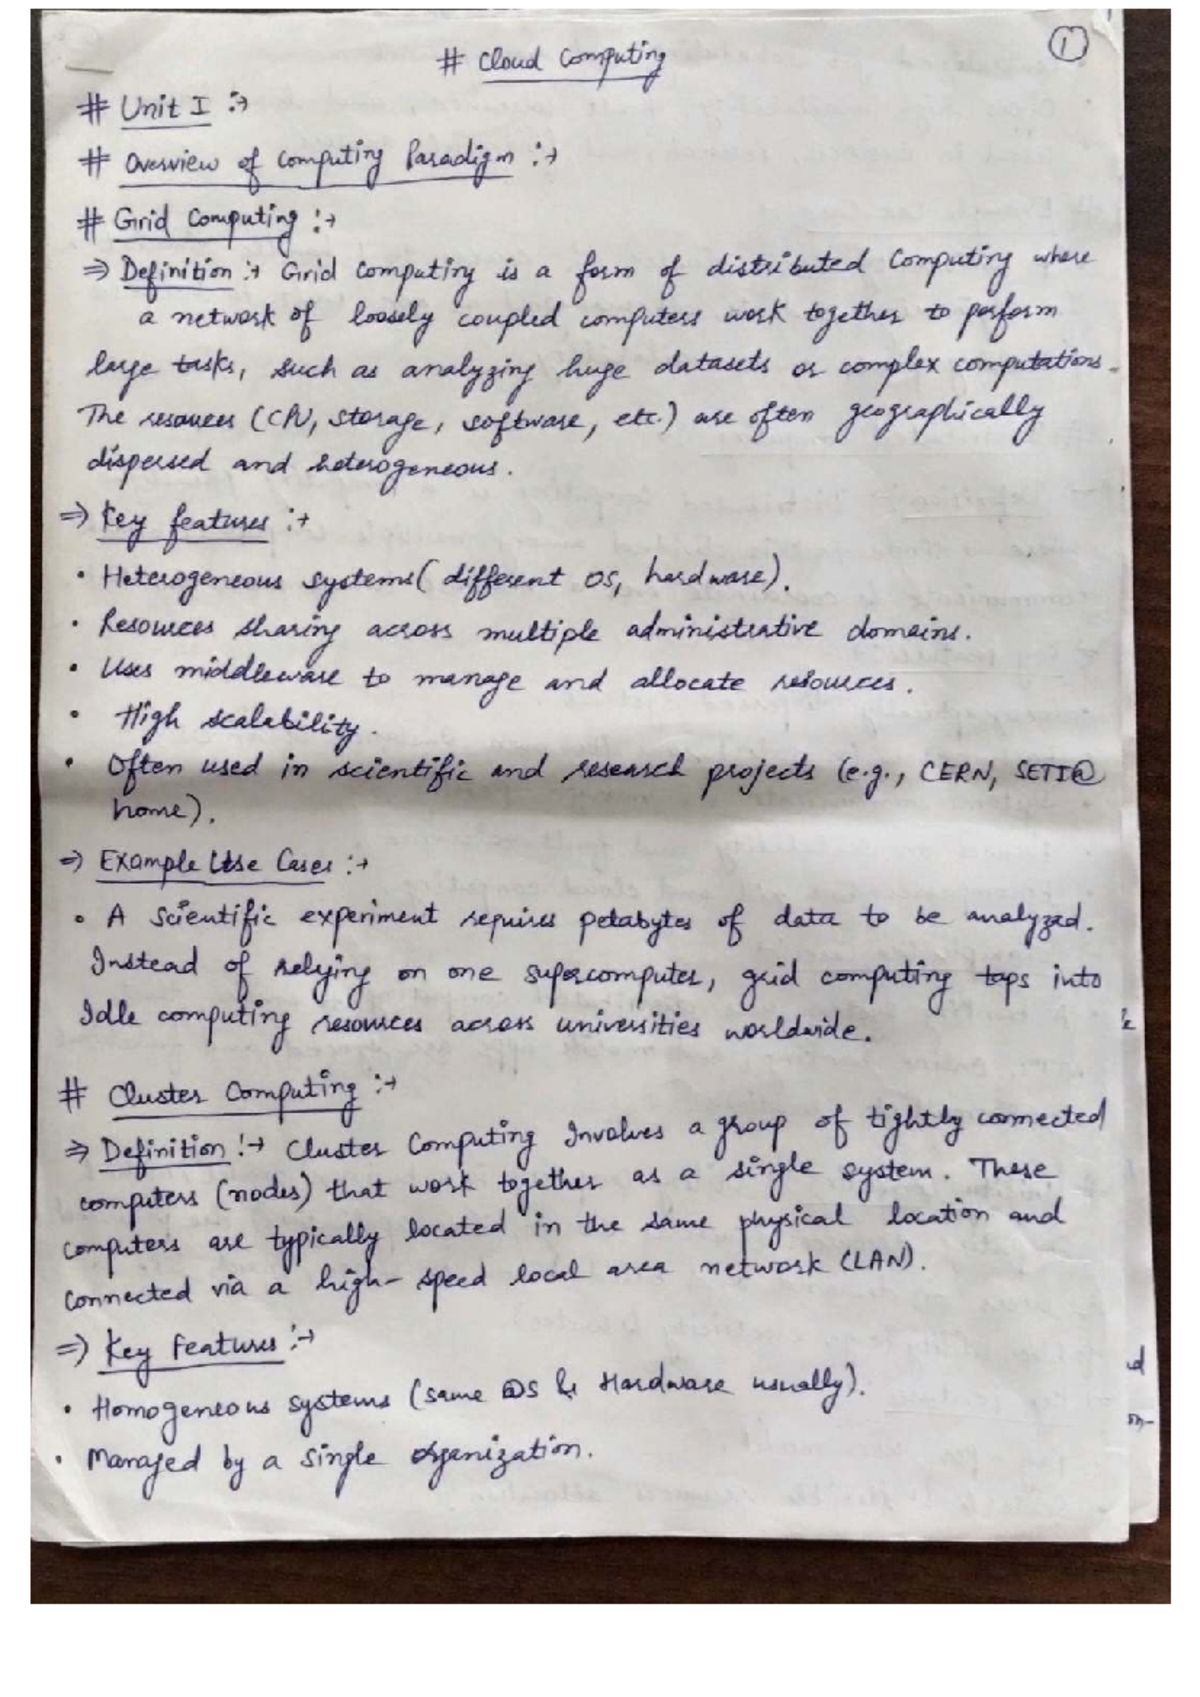 ①
# Cloud Computing
# Unit I :→
# Overview of Computing Paradigm :→
# Grid Computing :→
⇒ Definition :→ Grid Computing is a form of distributed Computing where
a network of loosely coupled computers work together to perform
large tasks, such as analyzing huge datasets or complex computations.
The resources (CPU, storage, software, etc.) are often geographically
dispersed and heterogeneous.
⇒ Key features :→
• Heterogeneous systems (different OS, hardware).
• Resources sharing across multiple administrative domains.
• Uses middleware to manage and allocate resources.
• High scalability.
• Often used in scientific and research projects (e.g., CERN, SETI@
home).
⇒ Example Use Cases :→
• A scientific experiment requires petabytes of data to be analyzed.
Instead of relying on one supercomputer, grid computing taps into
Idle computing resources across universities worldwide.
# Cluster Computing :→
⇒ Definition :→ Cluster Computing Involves a group of tightly connected
computers (nodes) that work together as a single system. These
computers are typically located in the same physical location and
Connected via a high-speed local area network (LAN).
⇒ Key Features :→
• Homogeneous systems (same OS & Hardware usually).
• Managed by a single organization.